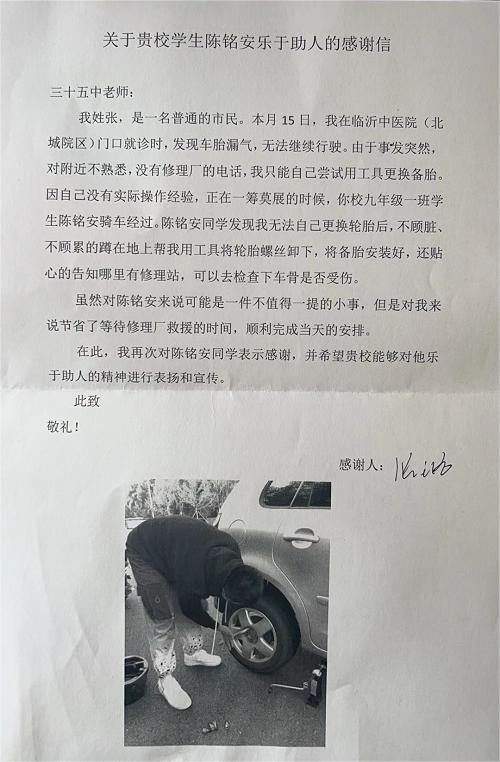 关于贵校学生陈铭安乐于助人的感谢信
三十五中老师：
我姓张，是一名普通的市民。本月 15 日，我在临沂中医院（北
城院区）门口就诊时，发现车胎漏气，无法继续行驶。由于事发突然，
对附近不熟悉，没有修理厂的电话，我只能自己尝试用工具更换备胎。
因自己没有实际操作经验，正在一筹莫展的时候，你校九年级一班学
生陈铭安骑车经过。陈铭安同学发现我无法自己更换轮胎后，不顾脏、
不顾累的蹲在地上帮我用工具将轮胎螺丝卸下，将备胎安装好，还贴
心的告知哪里有修理站，可以去检查下车骨是否受伤。
虽然对陈铭安来说可能是一件不值得一提的小事，但是对我来
说节省了等待修理厂救援的时间，顺利完成当天的安排。
在此，我再次对陈铭安同学表示感谢，并希望贵校能够对他乐
于助人的精神进行表扬和宣传。
此致
敬礼！
感谢人：